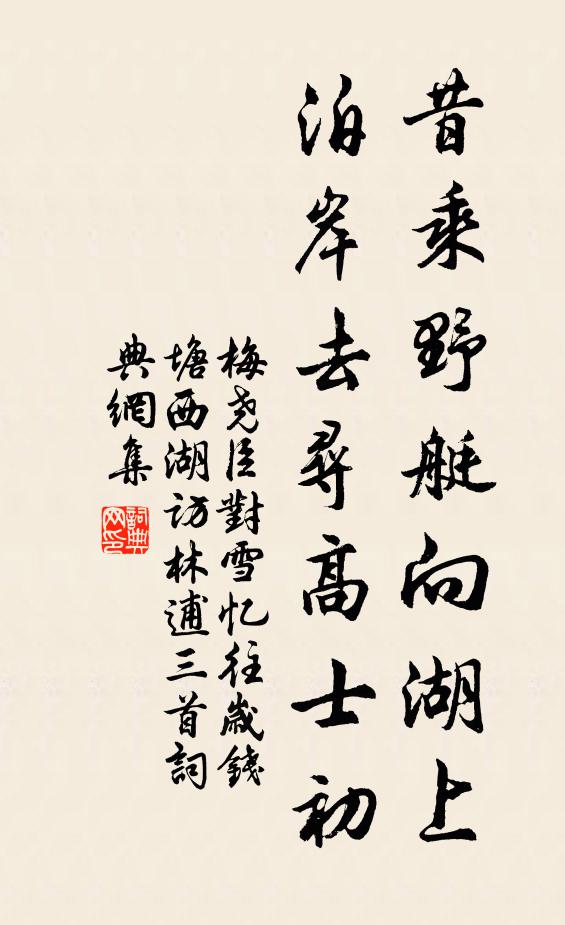 昔乘野艇向湖上
泊岸去尋高士初
梅尧臣對雪忆往歲錢
塘西湖访林逋三首詞
典網集
詞典
网印